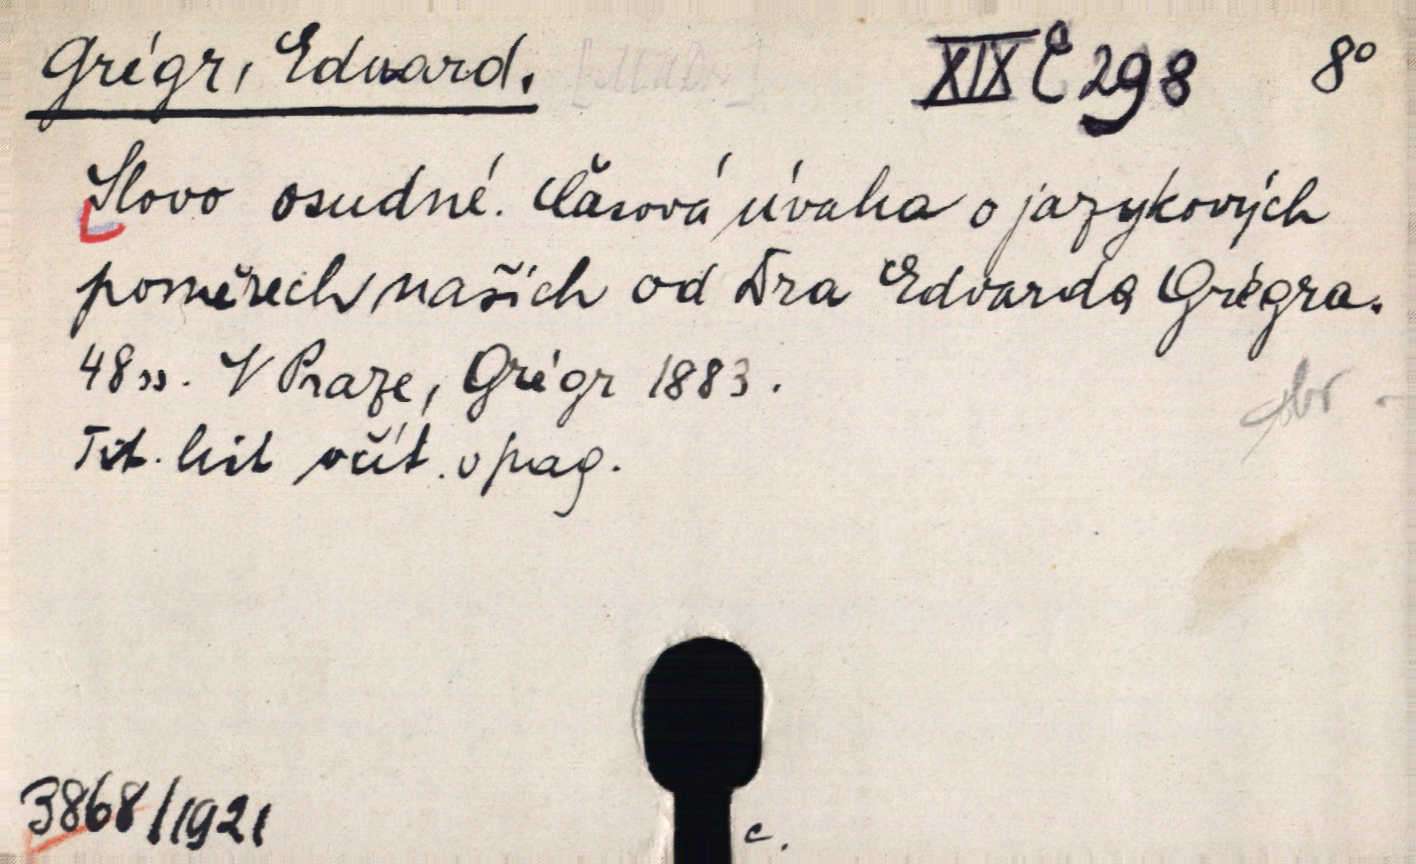 Grégr, Eduard. [MUDr.] XIX E 298 8°
Slovo osudné. Časová úvaha o jazykových
poměrech našich od Dra Edvarda Grégra.
48 ss. V Praze, Grégr 1883.
Tit. list včít. v pag.
3868/1921
c.